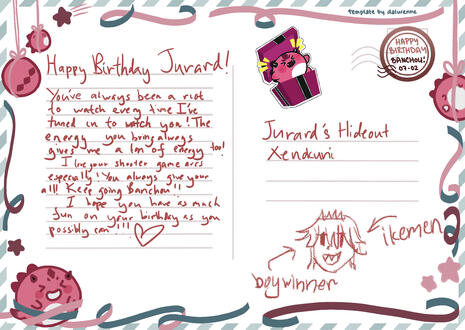 template by daiurenne
HAPPY
BIRTHDAY
BANCHOU!
07-02
Happy Birthday Jurard!
You've always been a riot
to watch every time I've
tuned in to watch you! The
energy you bring always
gives me a ton of energy too!
I love your shooter game arcs
especially! You always give your
all! Keep going Banchou!!
I hope you have as much
fun on your birthday as you
possibly can!!!
Jurard's Hideout
Xenokuni
ikemen
boywinner